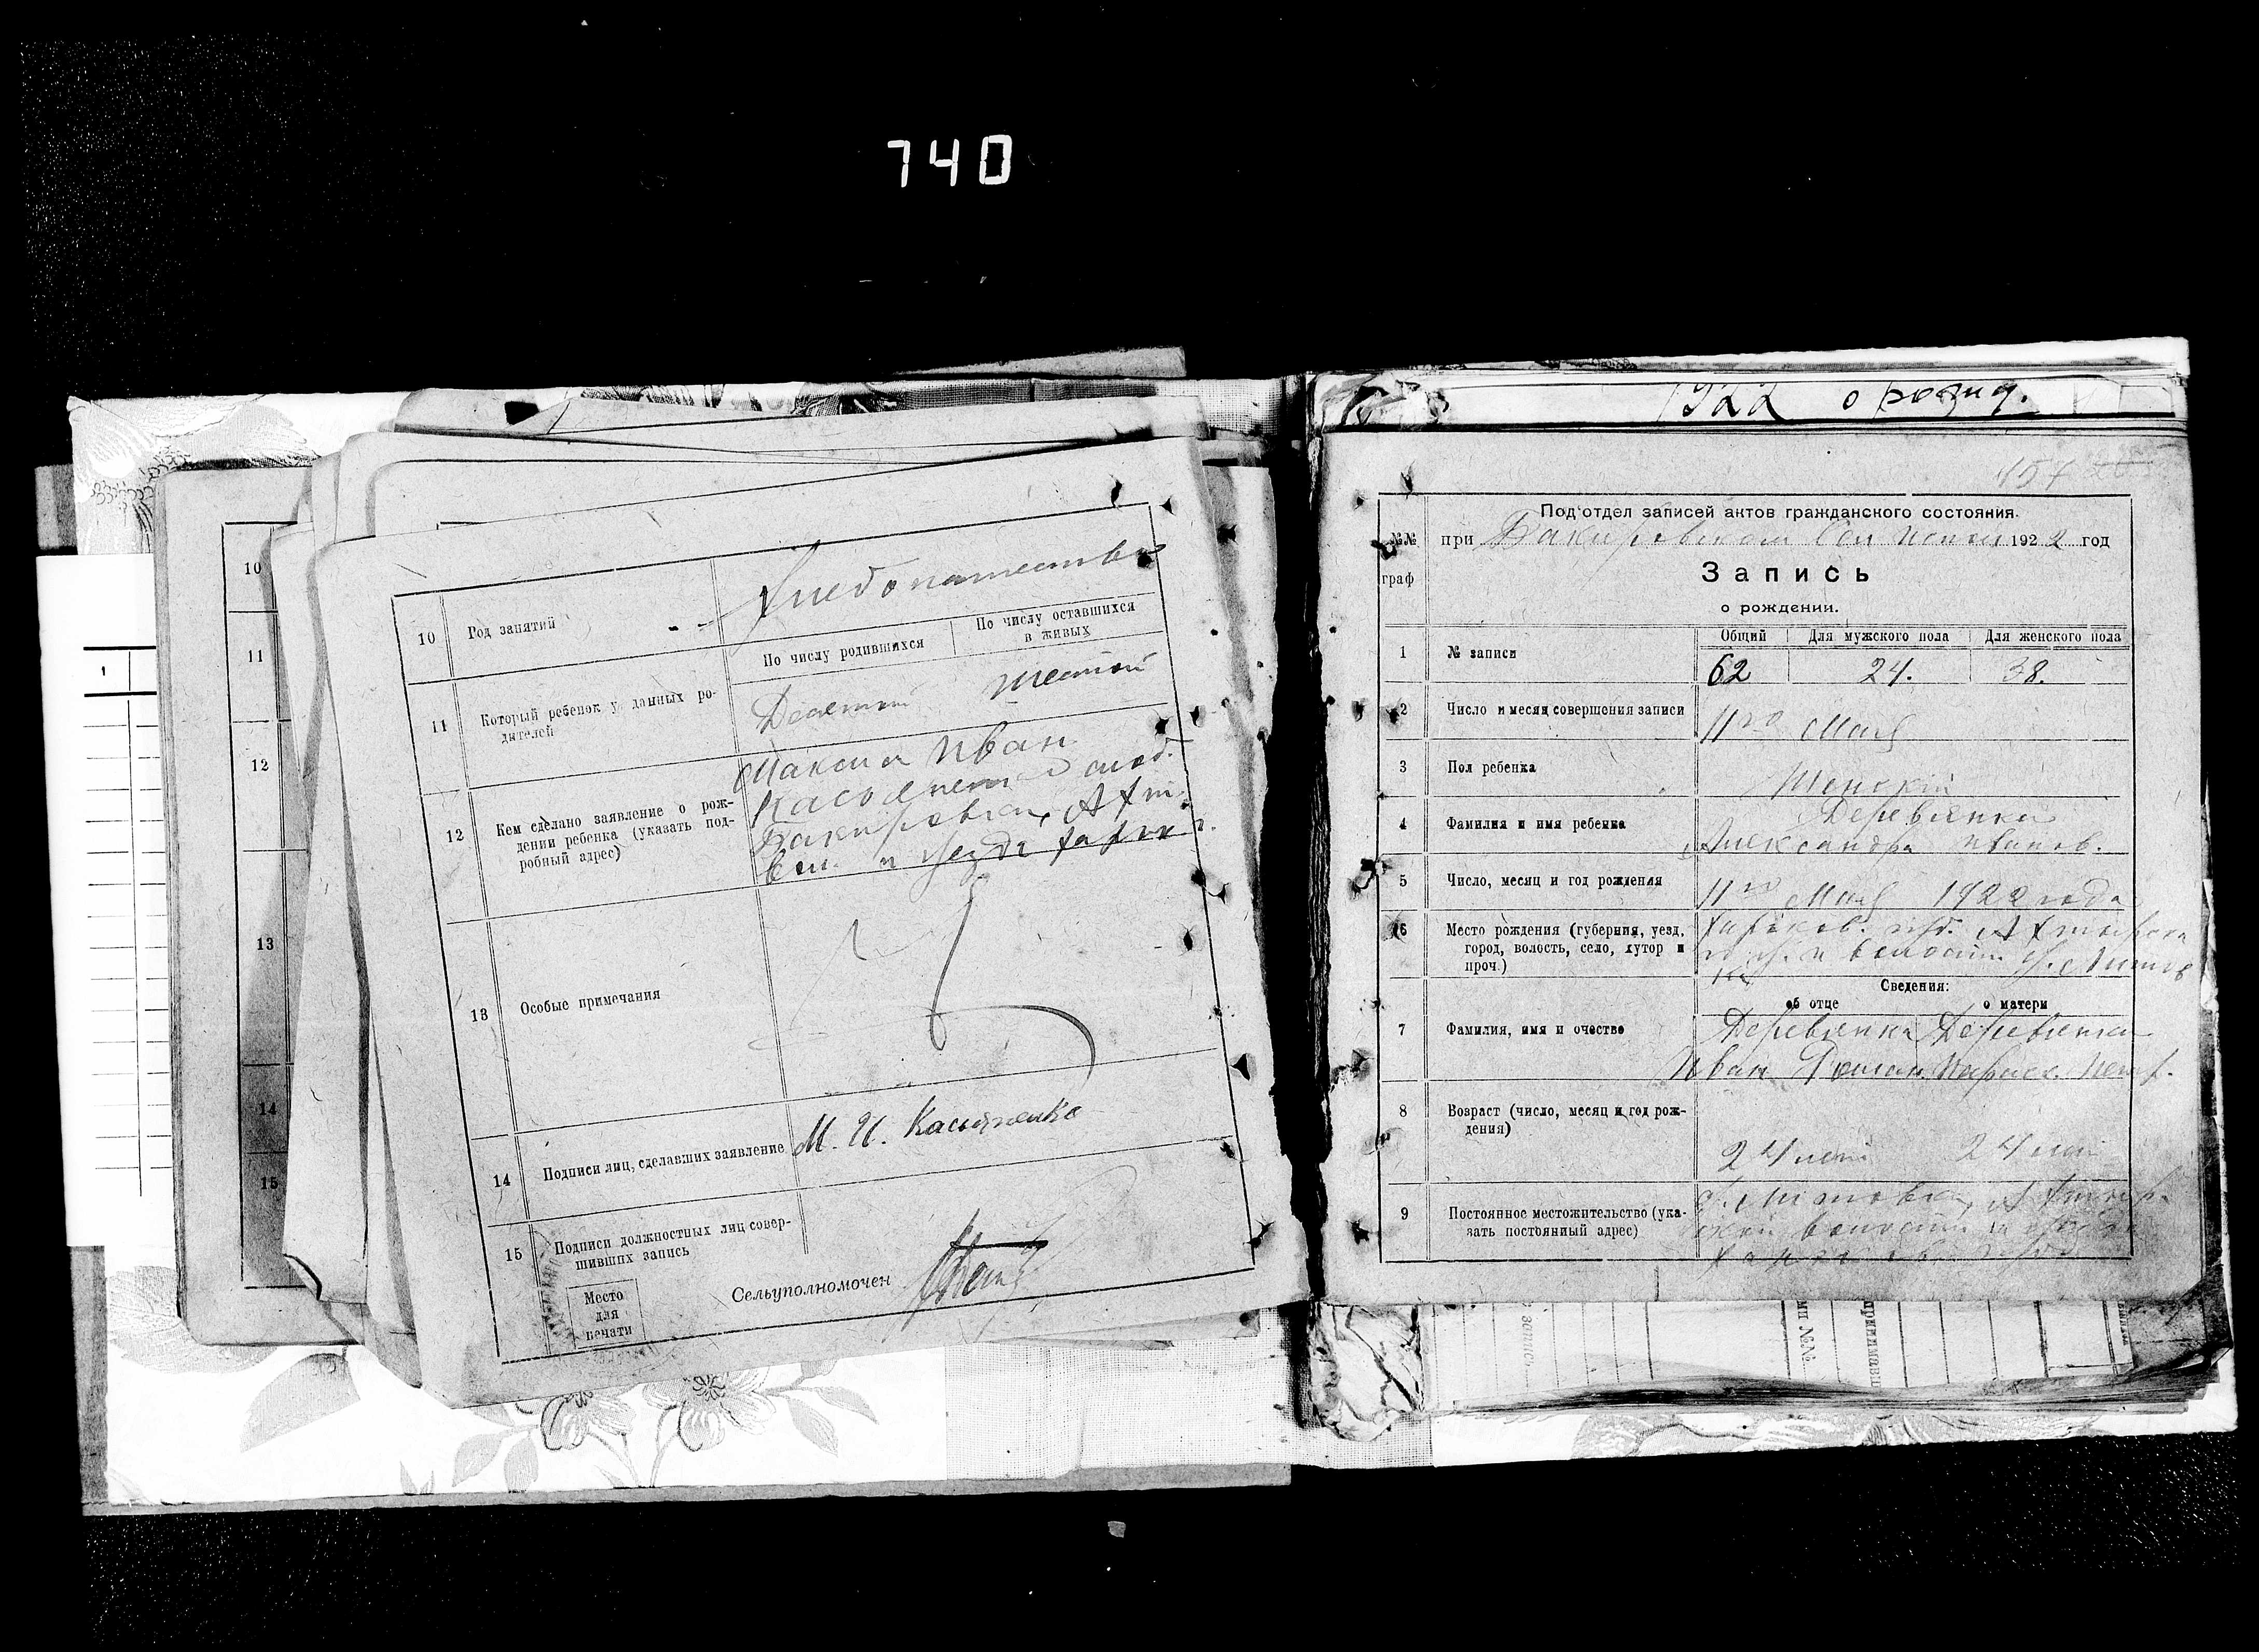 740
10
11
12
13
14
15
1
10 Род занятий Хлебопашество
По числу родившихся
По числу оставшихся в живых
11 Который ребенок у данных ро-
дителей
Десятый шестой
12 Кем сделано заявление о рож-
дении ребенка (указать под-
робный адрес)
Максим Иван
Касьяненко слоб.
Бакировки, Ахт.
вол. и уезда Харьк. г.
13 Особые примечания
14 Подписи лиц, сделавших заявление М. И. Касьяненко
15 Подписи должностных лиц совер-
шивших запись
Место
для
печати
Сельуполномочен
1922 о рожд.
157
Под‘отдел записей актов гражданского состояния.
№№ при Бакировском Сел 1922 год
граф
Запись
о рождении.
Общий Для мужского пола Для женского пола
1 № записи 62 24. 38.
2 Число и месяц совершения записи 11го Мая
3 Пол ребенка Женский
4 Фамилия и имя ребенка Деревянко
Александра Иванов.
5 Число, месяц и год рождения 11го Мая 1922 года
6 Место рождения (губерния, уезд,
город, волость, село, хутор и
проч.)
Харьков. губ. Ахтырско
го у. и волости
Сведения:
об отце о матери
7 Фамилия, имя и очество Деревянко Деревянко
Иван Роман. Параск. Петр.
8 Возраст (число, месяц и год рож-
дения)
24 лет 24 лет
9 Постоянное местожительство (ука-
зать постоянный адрес)
Ахтыр
ской волости и уезда
Харьков. губ.